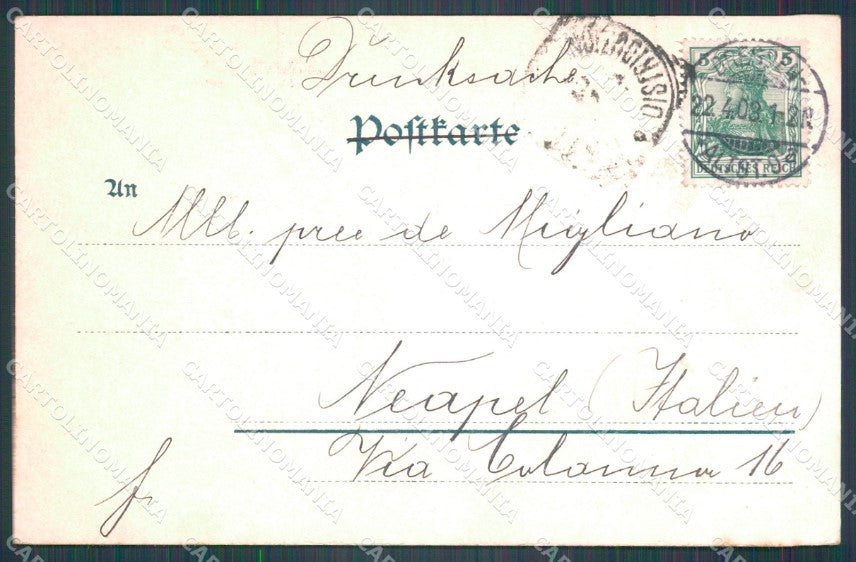 Drucksache
Postkarte
An
Mll. pree de Migliano
Neapel (Italien)
Via Colonna 16
5 5
22.4.03.1-2N.
DEUTSCHES REICH
CARTOLINOMANIA